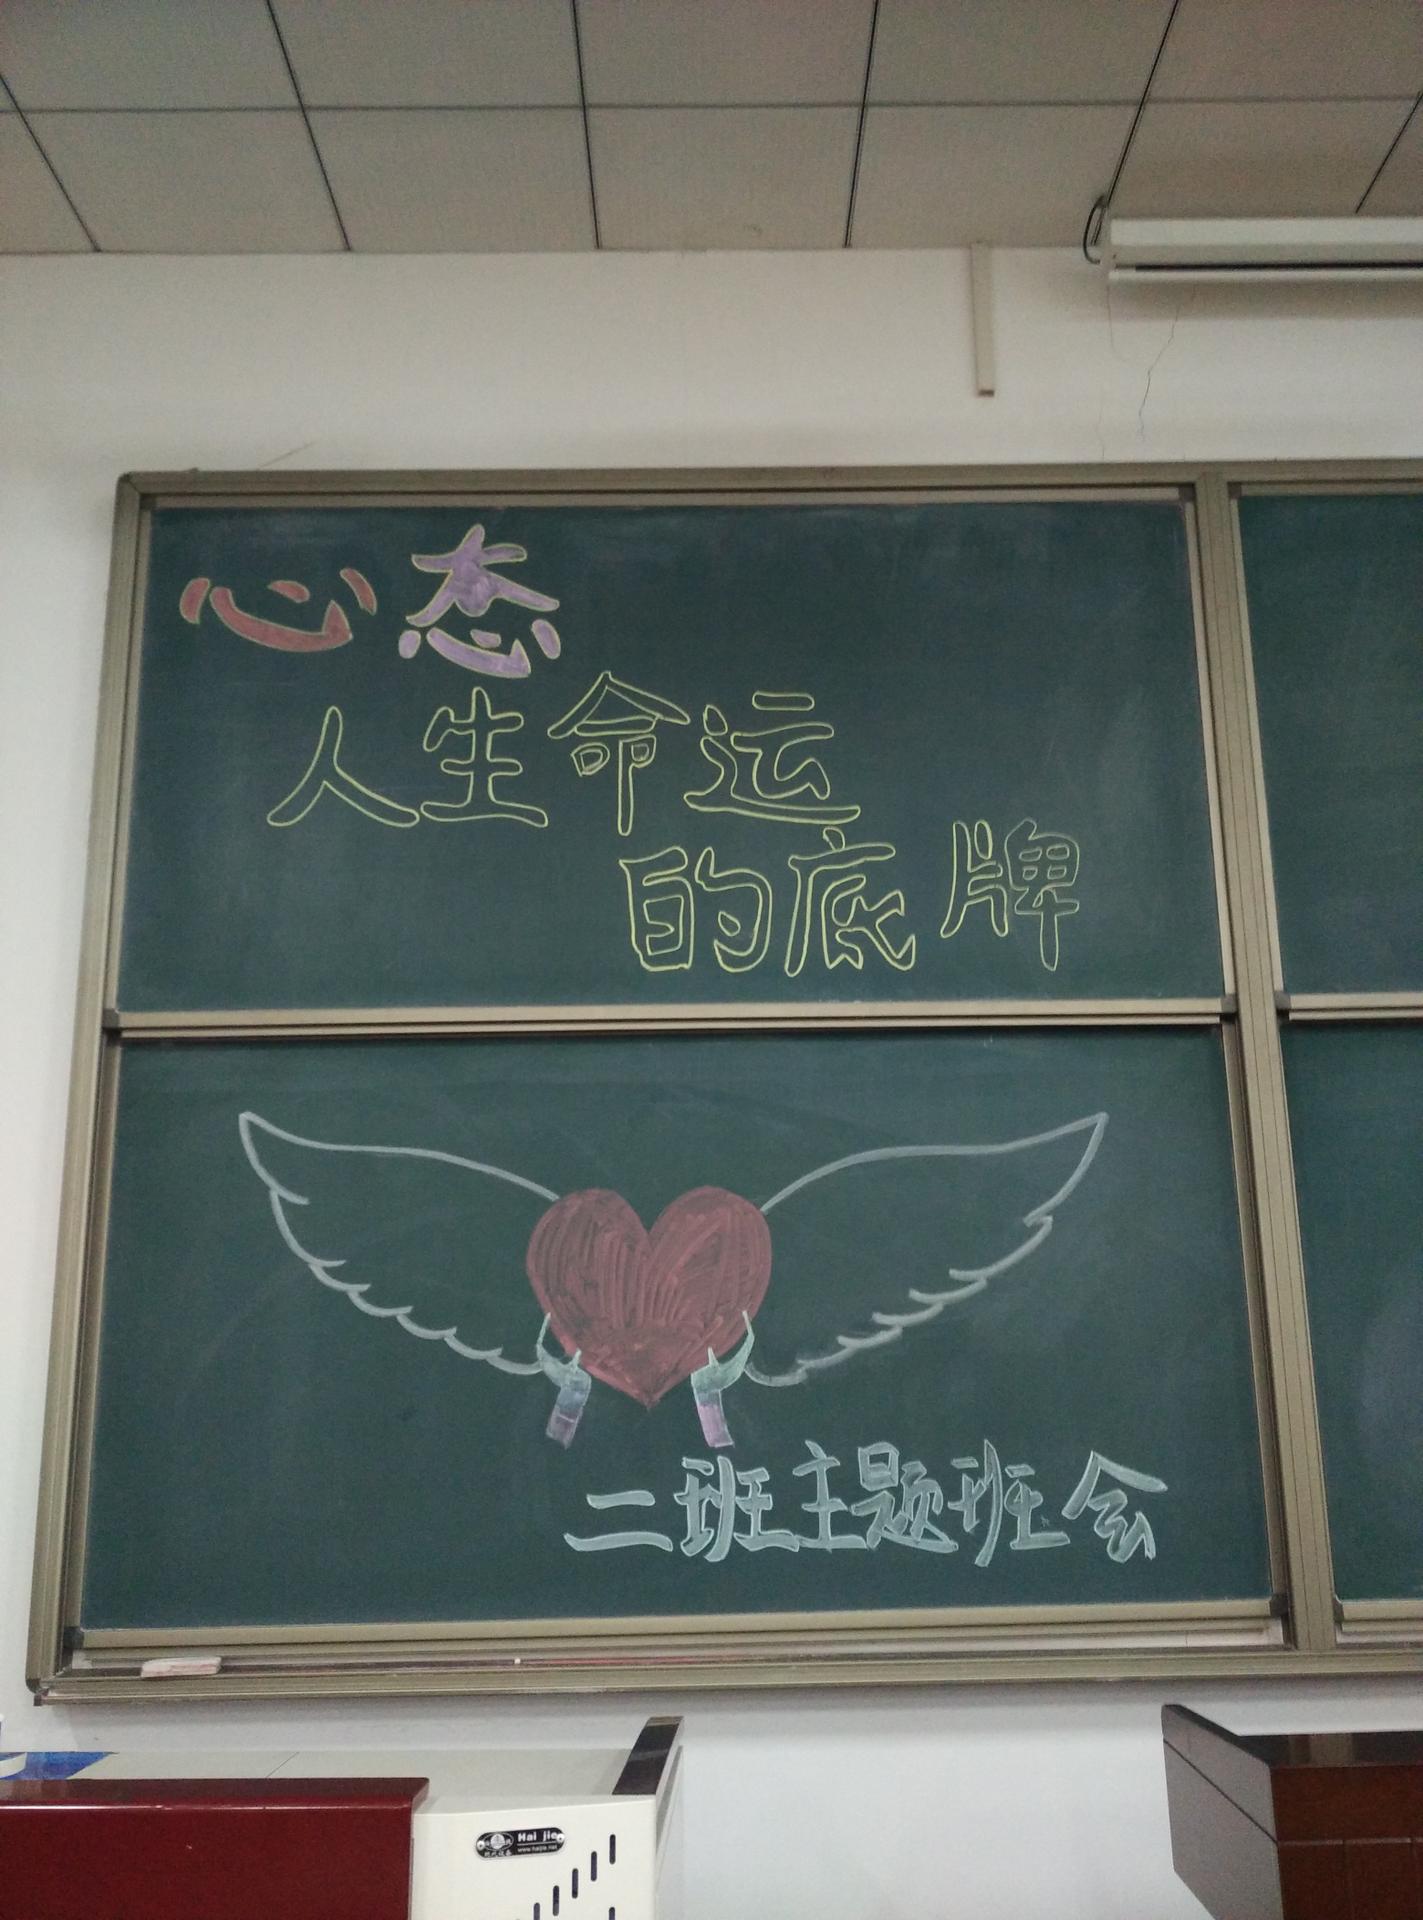 心态
人生命运
的底牌
二班主题班会
Hai jie
www.haijie.net